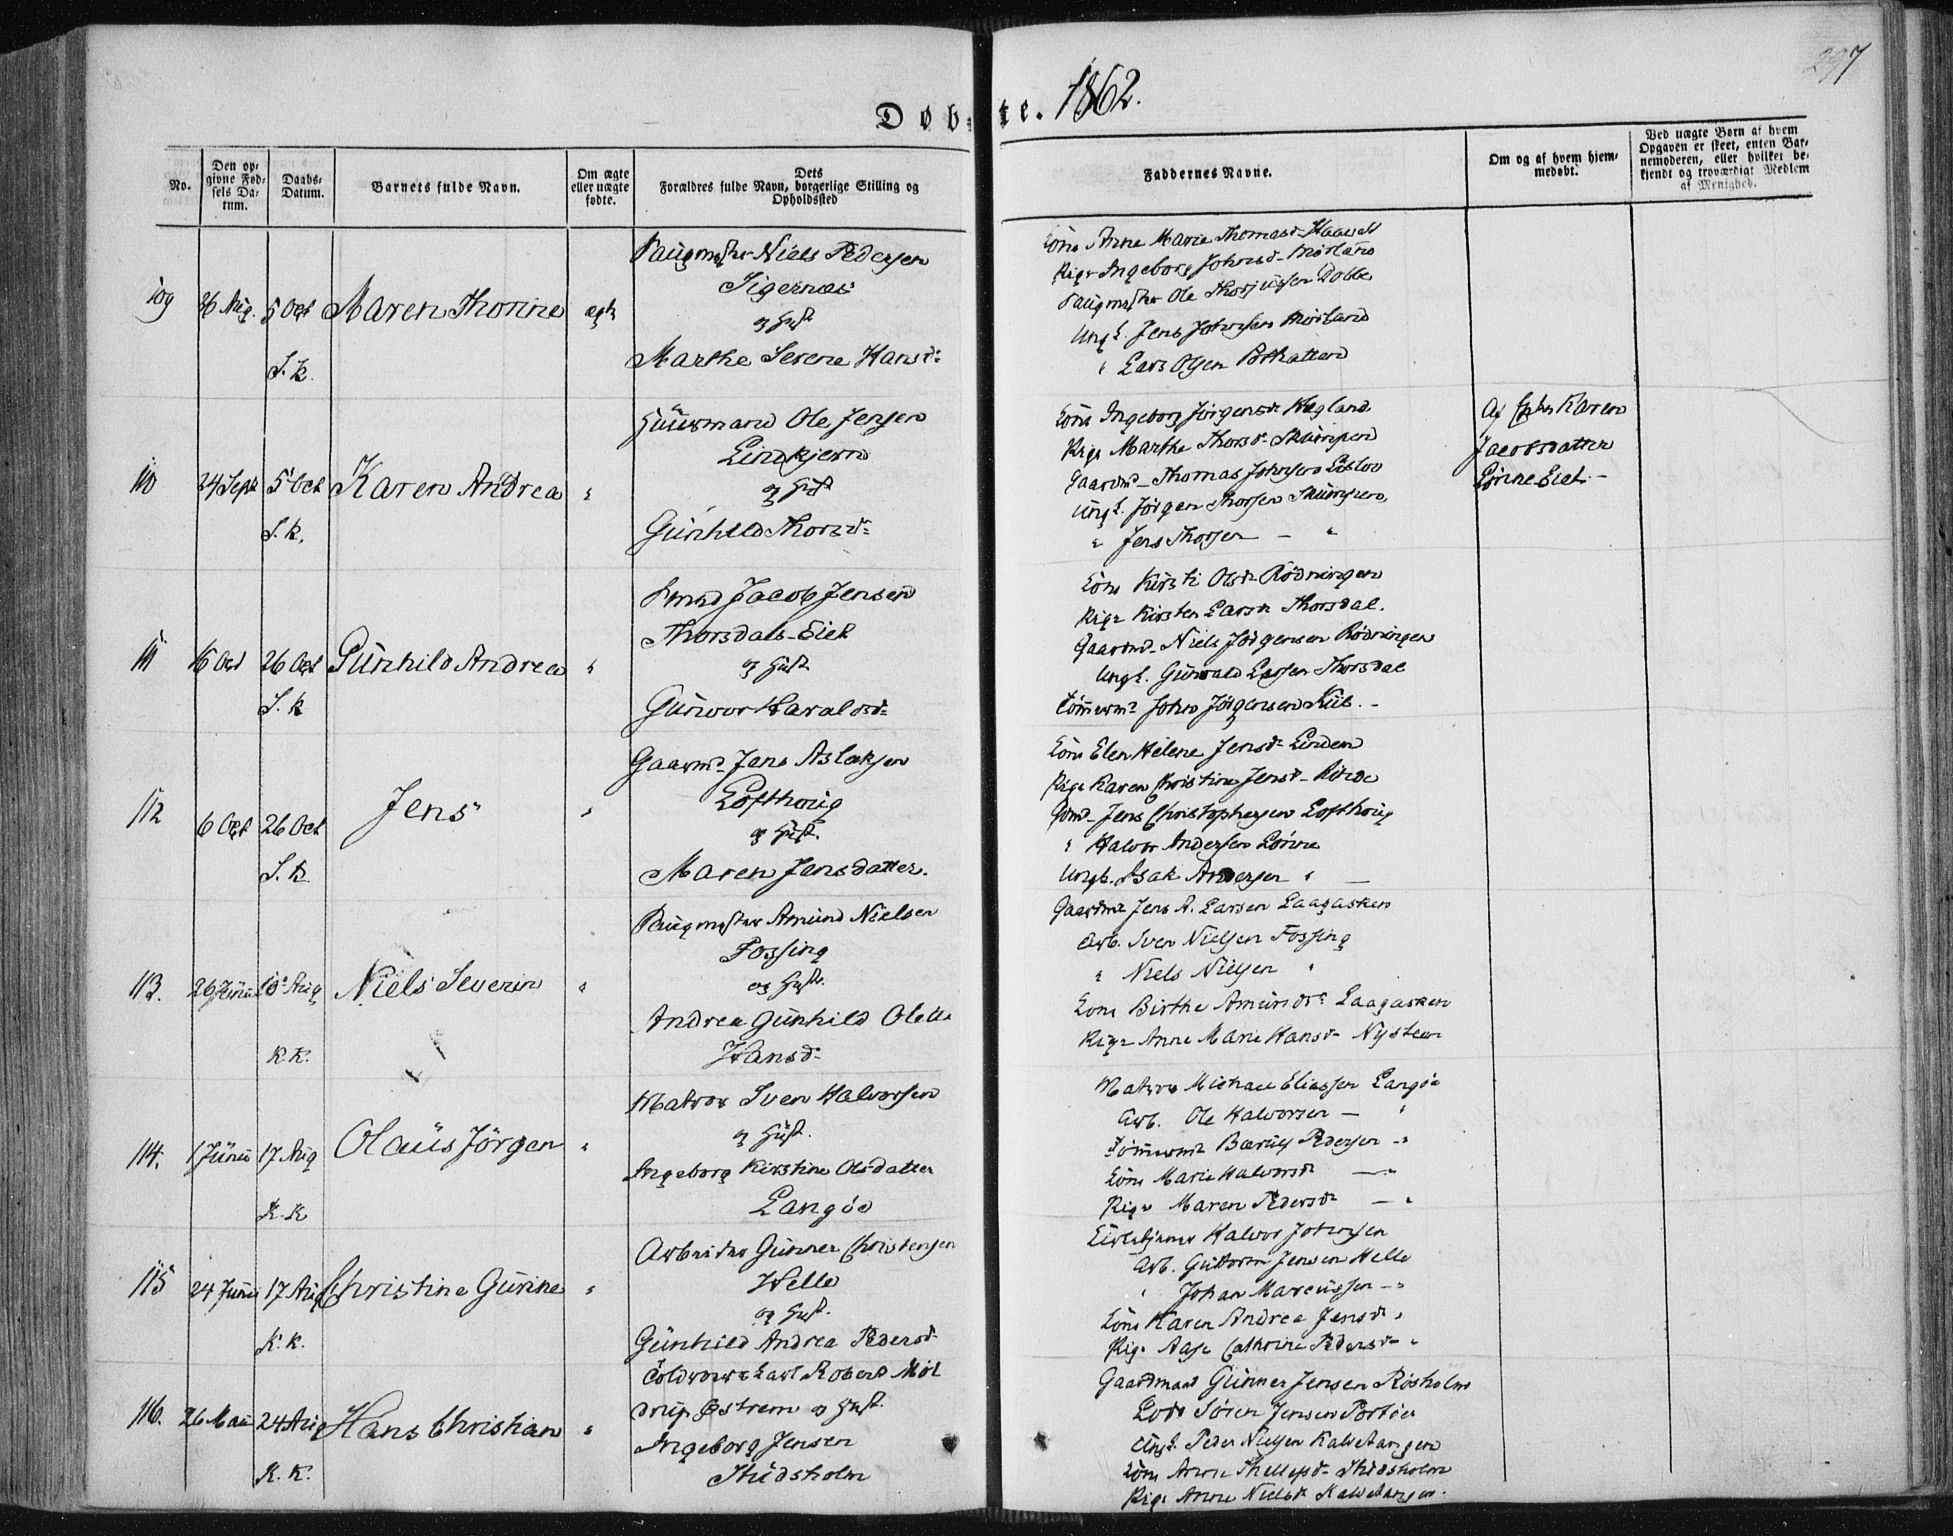 297
Döb=te. 1862.
No.
Den op=
givne Fød=
sels Da=
tum.
Daabs=
Datum.
Barnets fulde Navn.
Om ægte
eller uægte
fødte.
Dets
Forældres fulde Navn, borgerlige Stilling og
Opholdssted
Faddernes Navne.
Om og af hvem hjem=
medøbt.
Ved uægte Børn af hvem
Opgaven er skeet, enten Bar=
nemoderen, eller hvilket be=
kjendt og troværdigt Medlem
af Menighed.
109
26 Aug. 5 Oct
S. K.
Maren Thorine
ægte
Niels Pedersen
Sigernæs
og Hust
Marthe Serene Hansd:
Kone Anne Marie Thomasd.
Pige Ingeborg Johnsd.
Ole Thorjussen Dobbe
Ungk. Jens Johnsen
" Lars Olsen
110
24 Sept 5 Oct
S. K.
Karen Andrea
"
Huusmand Ole Jensen
Lindkjern
og Hust
Gunhild Thorsd:
Kone Ingeborg Jörgensd. Hegland
Pige Marthe Thorsd.
Gaardmd Thomas Johnsen
Ungk. Jörgen Thorsen
" Jens Thorsen — "
Af Karen
Jacobsdatter
111
16 Oct 26 Oct
S. K
Gunhild Andrea
"
Jacob Jensen
Thorsdals-Eiet
og Hust
Gunvor Haraldsd:
Kone Kirsti Olsd. Rödningen
Pige Kirsten Larsd. Thorsdal.
Gaardmd. Niels Jörgensen Rödningen
Ungk. Gunvald Larsen Thorsdal
Tömmermd John Jörgensen Kiil. -
112
6 Oct 26 Oct
S. K
Jens
"
Gaardmd. Jens Aslaksen
Lofthoug
og Hust.
Maren Jensdatter.
Kone Elen Helene Jensd. Linden
Pige Karen Christine Jensd.
Gmd. Jens Christophersen Lofthoug
" Halvor Andersen
Ungk. Isak Andersen " —
113.
26 Juni 10 Aug
K. K.
Niels Severin
"
Amund Nielsen
Fossing
og Hust.
Andrea Gunhild Olette
Hansd.
Gaardmd Jens A. Larsen Laagasken
Arb. Sven Nielsen Fossing
" Niels Nielsen "
Kone Birthe Amundsd. Laagasken
Pige Anne Marie Hansd. Nysteen
114.
1 Juni 17 Aug
K. K
Olaüs Jörgen
"
Matros Sven Halvorsen
og Hust.
Ingeborg Kirstine Olsdatter
Langöe
Matros Michael Eliassen Langöe
Arb. Ole Halvorsen — "
Tömmermd Pedersen - "
Kone Marie Halvorsd. — "
Pige Maren Pedersd. — "
115
24 Juni 17 Aug
K. K.
Christine Gurine
"
Arbeider Gunner Christensen
Helle
og Hust.
Gunhild Andrea Pedersd.
Halvor Johnsen
Arb. Guttorm Jensen Helle
" Johan Marcussen - "
Kone Karen Andrea Jensd. "
Pige Aase Cathrine Pedersd. "
116.
26 Mai 24 Aug
K. K.
Hans Christian
"
Carl Robert Möl
Östrem og Hust.
Ingeborg Jensen
Skidsholm
Gaardmand Gunner Jensen
Lods Sören Jensen Portöer
Ungk. Peder Nielsen
Kone Anne Skidsholm
Pige Anne Nielsd.